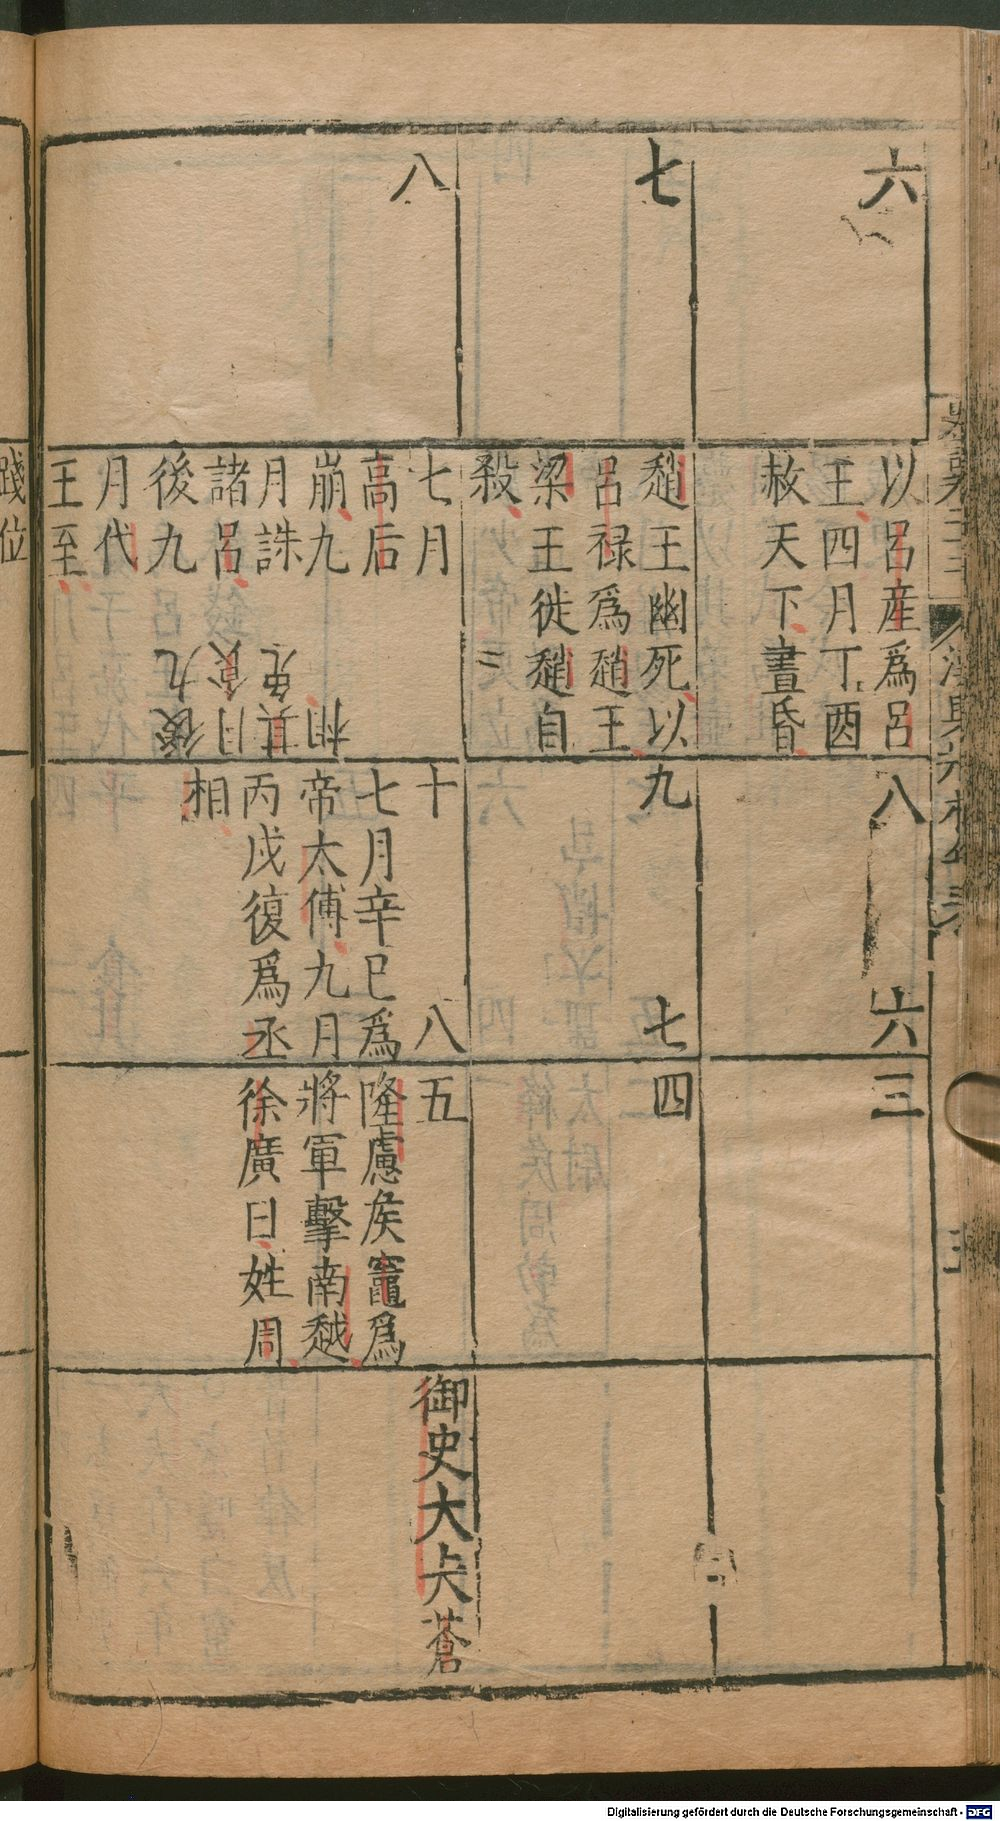 六
以呂產爲呂
王四月丁酉
赦天下晝昏
八
六
三
七
趙王幽死以
呂祿爲趙王
梁王徙趙自
殺
九
七
四
八
七月
高后
崩九
月誅
諸呂
後九
月代
王至
相
其免
月食
後九
十
八
七月辛巳爲
帝太傅九月
丙戌復爲丞
相
五
隆慮侯竈爲
將軍擊南越
徐廣曰姓周
御史大夫蒼
踐位
Digitalisierung gefördert durch die Deutsche Forschungsgemeinschaft - DFG